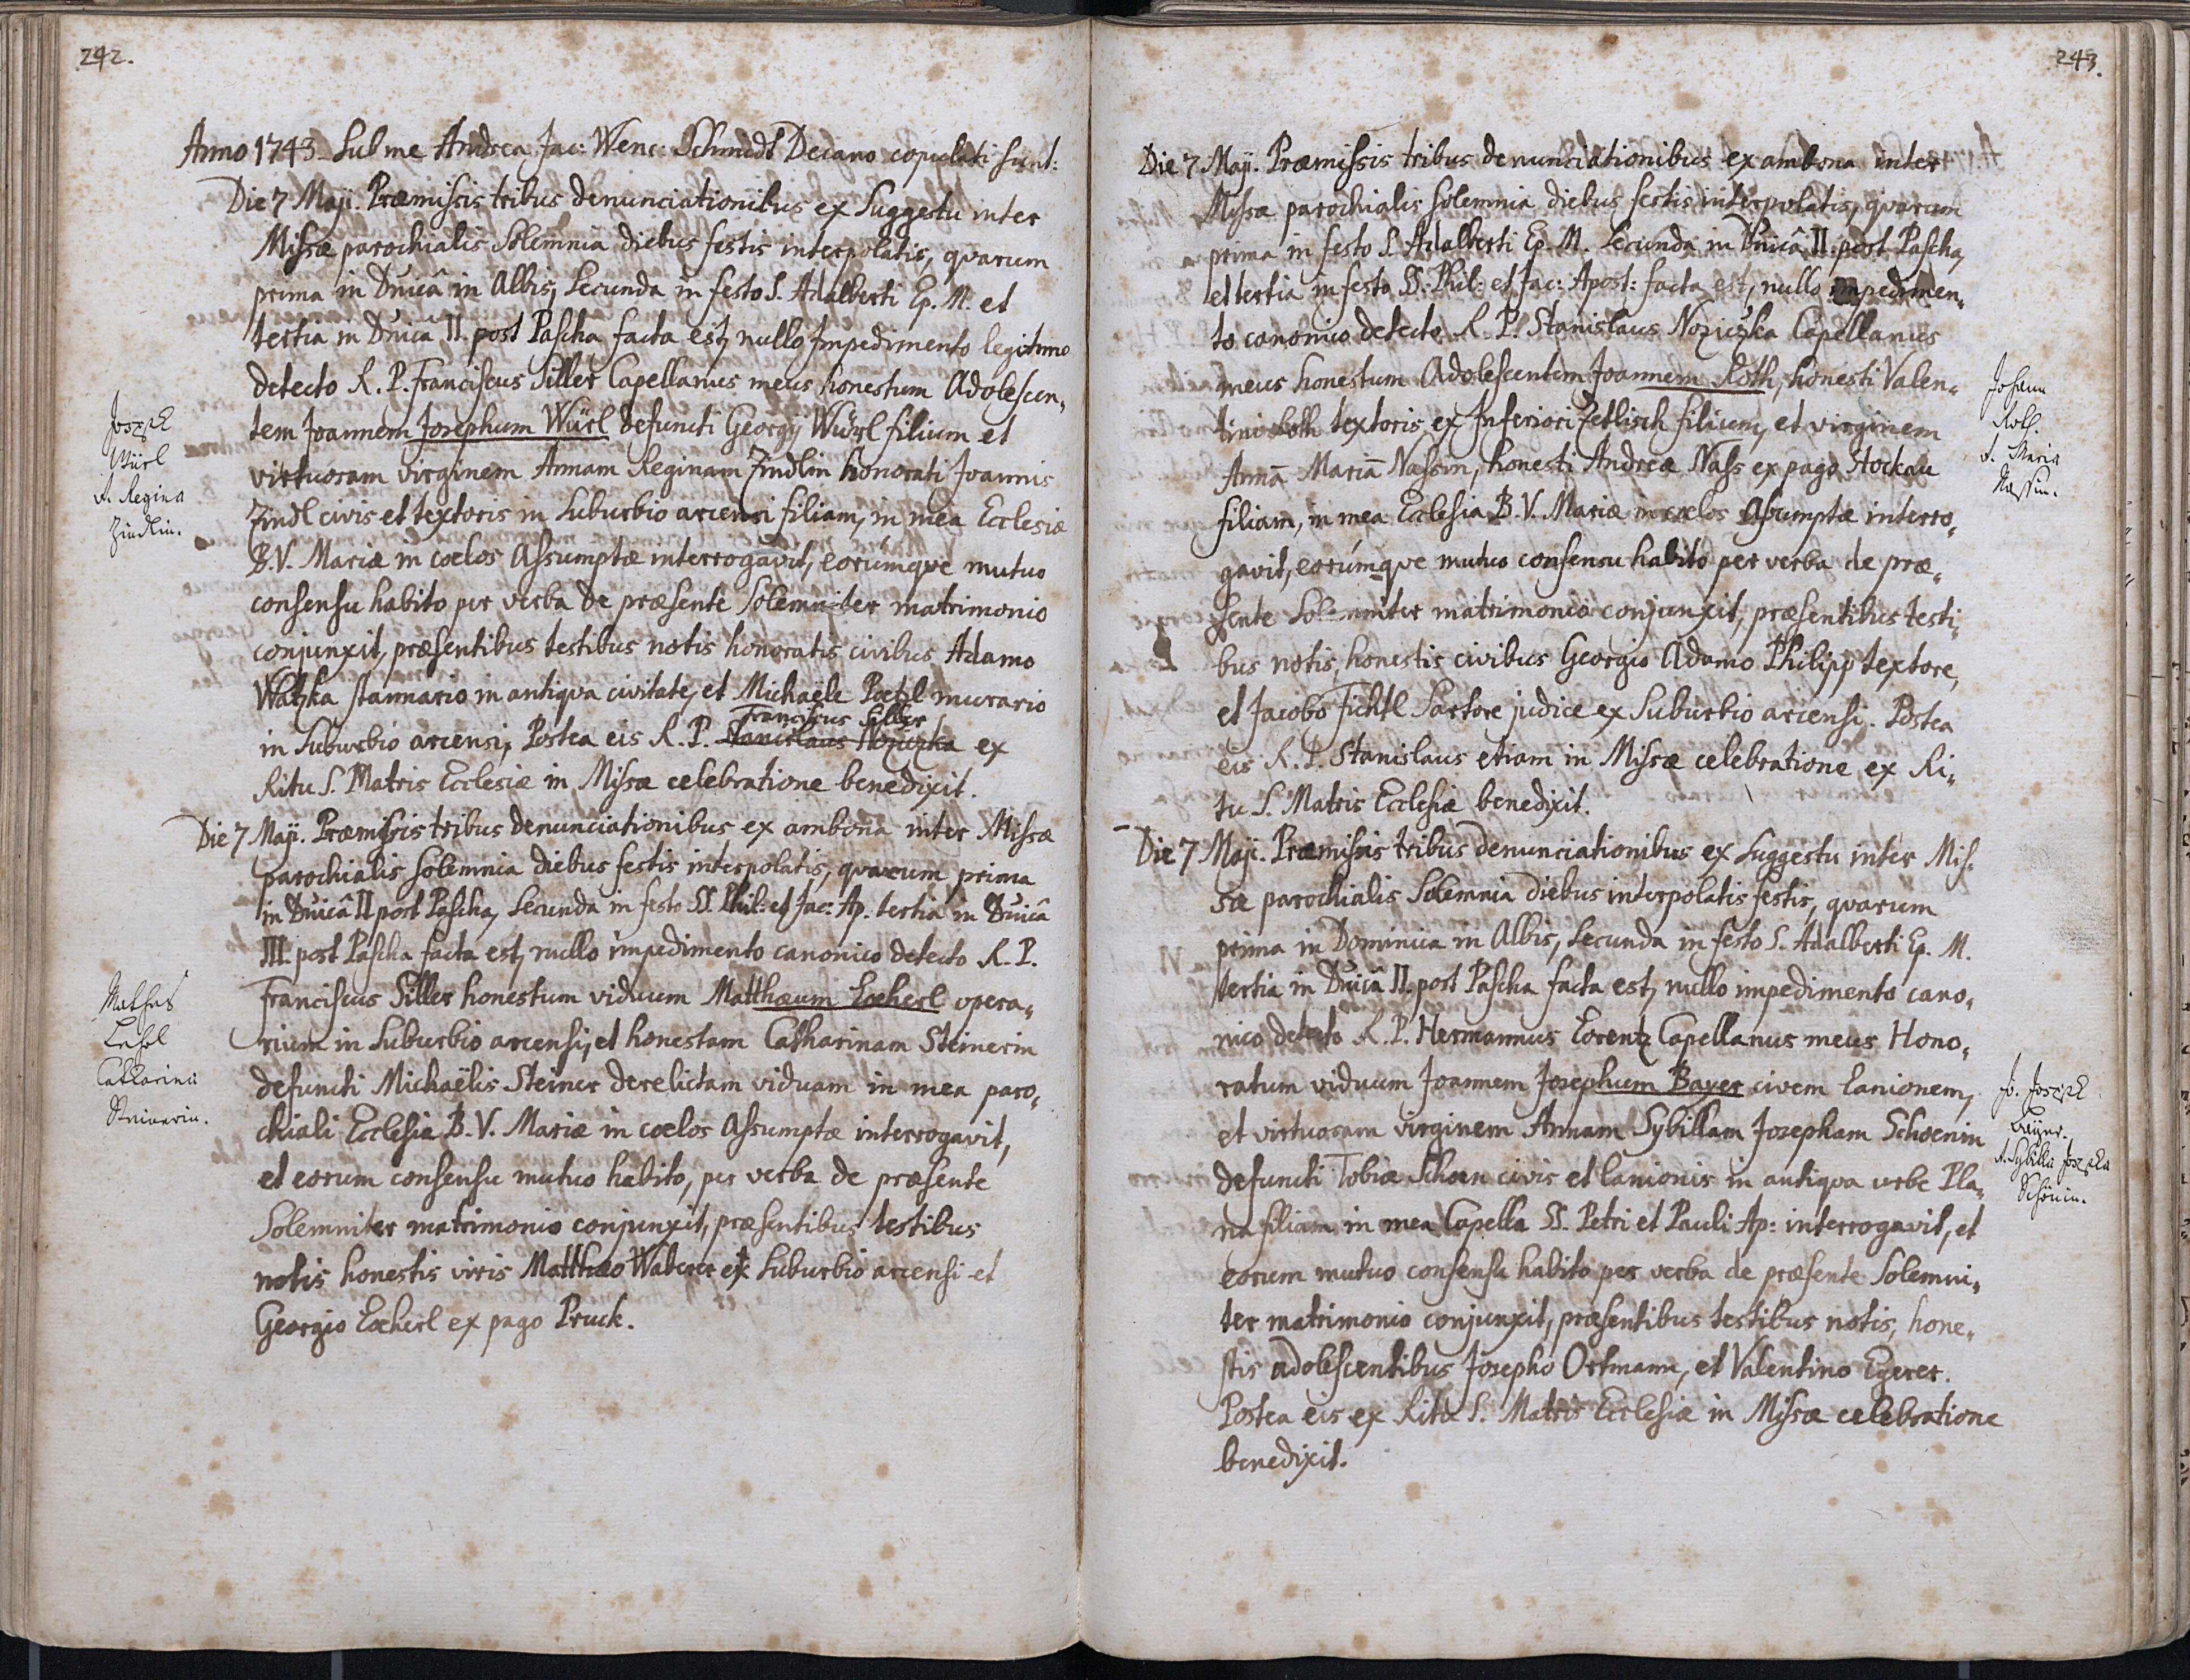 242.
Anno 1743. Sub me Andrea Jac: Wenc: Schmidt Decano copulati sunt:
Die 7 Maji. Præmissis tribus denunciationibus ex Suggestu inter
Missæ parochialis Solemnia diebus festis interpolatis, quarum
prima in Dnicâ in Albis, Secunda in festo S. Adalberti Ep. M. et
tertia in Dnica II. post Pascha facta est, nullo Impedimento legitimo
detecto R. P. Franciscus Siller Capellanus meus honestum Adolescen,
tem Joannem Josephum Würl defuncti Georgij Würl filium et
virtuosam virginem Annam Reginam Zindlin honorati Joannis
Zindl civis et textoris in Suburbio arcensi filiam, in mea Ecclesiæ
B.V. Mariæ in coelos Assumptæ interrogavit, eorúmque mutuo
consensu habito per verba de præsente Solemniter matrimonio
conjunxit, præsentibus testibus notis honoratis civibus Adamo
Watzka stannario in antiqva civitate, et Michaële Poetzl murario
Franciscus Siller
in Suburbio arcensi, Postea eis R. P. Stanislaus Noziczka ex
Ritu S. Matris Ecclesiæ in Missæ celebratione benedixit.
Joseph
Würl
A. Regina
Zindlin.
Die 7 Maji. Præmissis tribus denunciationibus ex ambona inter Missæ
parochialis Solemnia diebus festis interpolatis, quarum prima
in Dnicâ II post Pascha, Secunda in festo SS. Phil: et Jac: Ap. tertia in Dnicâ
III. post Pascha facta est, nullo impedimento canonico detecto R. P.
Franciscus Siller honestum viduum Matthæum Loeherl opera,
rium in Suburbio arcensi, et honestam Catharinam Steinerin
defuncti Michaëlis Steiner derelictam viduam in mea paro,
chiali Ecclesia B. V. Mariæ in coelos Assumptæ interrogavit,
et eorum consensu mutuo habito, per verba de præsente
Solemniter matrimonio conjunxit, præsentibus testibus
notis honestis viris Matthæo Waberer ex Suburbio arcensi et
Georgio Loeherl ex pago Pruck.
Mathes
Catharina
Steinerin.
243.
Die 7 Maji. Præmissis tribus denunciationibus ex ambona inter
Missæ parochialis Solemnia diebus festis interpolatis, quarum
prima in festo S. Adalberti Ep. M. Secunda in Dnicâ II. post Pascha,
et tertia in festo SS: Phil: et Jac: Apost: facta est, nullo impedimen,
to canonico detecto R. P. Stanislaus Noziczka Capellanus
meus honestum Adolescentem Joannem Roth, honesti Valen,
tini Roth textoris ex Inferiori Zetlisch filium, et virginem
Annā Mariā Nassin, honesti Andreæ Nass ex pago Stockau
filiam, in mea Ecclesia B. V. Mariæ in coelos Assumptæ interro,
gavit, eorúmque mutuo consensu habito per verba de præ,
sente Solemniter matrimonio conjunxit, præsentibus testi,
bus notis, honestis civibus Georgio Adamo Philipp textore,
et Jacobo Fichtl Sartore judice ex Suburbio arcensi. Postea
eis R. P. Stanislaus etiam in Missæ celebratione ex Ri,
tu S. Matris Ecclesiæ benedixit.
Johann
Roth.
A. Maria
Nassin.
Die 7 Maji. Præmissis tribus denunciationibus ex Suggestu inter Mis,
sæ parochialis Solemnia diebus interpolatis festis, quarum
prima in Dominica in Albis, Secunda in festo S. Adalberti Ep. M.
tertia in Dnicâ II. post Pascha facta est, nullo impedimento cano,
nico detecto R. P. Hermannus Lorentz Capellanus meus Hono,
ratum viduum Joannem Josephum Bayer civem Lanionem,
et virtuosam virginem Annam Sybillam Josepham Schoenin
defuncti Tobiæ Schoen civis et lanionis in antiqva urbe Pla,
na filiam in mea Capella SS. Petri et Pauli Ap: interrogavit, et
eorum mutuo consensu habito per verba de præsente Solemni,
ter matrimonio conjunxit, præsentibus testibus notis, hone,
stis adolescentibus Josepho Ortmann, et Valentino Egerer.
Postea eis ex Ritu S. Matris Ecclesiæ in Missæ celebratione
benedixit.
Jo. Joseph
Bayer.
A. Sybilla Josepha
Schönin.